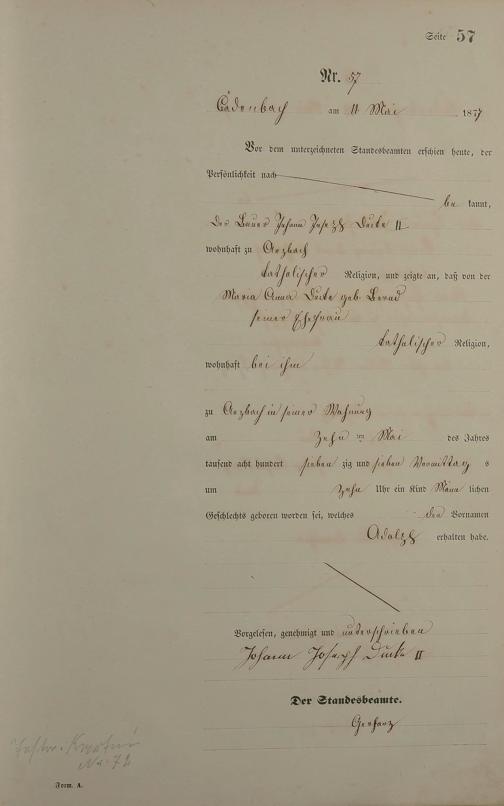 Seite 57
Nr. 57
Cadenbach am 11 Mai 1877
Vor dem unterzeichneten Standesbeamten erschien heute, der
Persönlichkeit nach
be kannt,
der Bauer Johann Joseph II
wohnhaft zu Arzbach
katholischer Religion, und zeigte an, daß von der
Maria Anna geb.
seiner Ehefrau
katholischer Religion,
wohnhaft bei ihm
zu Arzbach in seiner Wohnung
am Zehn ten Mai des Jahres
tausend acht hundert sieben zig und sieben Vormittag s
um Zehn Uhr ein Kind Männ lichen
Geschlechts geboren worden sei, welches den Vornamen
Adolph erhalten habe.
Vorgelesen, genehmigt und unterschrieben
Johann Joseph II
Der Standesbeamte.
No 72
Form. A.